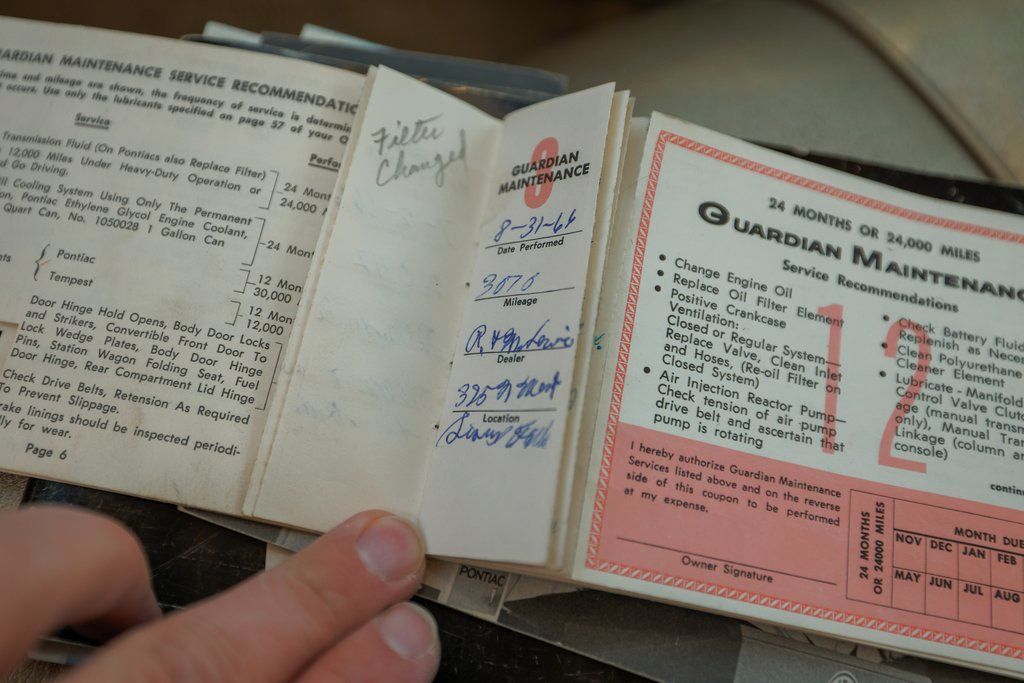 ARDIAN MAINTENANCE SERVICE RECOMMENDATIO
me and mileage are shown, the frequency of service is determi
occurs. Use only the lubricants specified on page 57 of your O
Service
Perfo
Transmission Fluid (On Pontiacs also Replace Filter)
12,000 Miles Under Heavy-Duty Operation or
d Go Driving.
24 Mon
24,000
ll Cooling System Using Only The Permanent
on, Pontiac Ethylene Glycol Engine Coolant,
Quart Can, No. 1050028 1 Gallon Can
24 Mont
nts
Pontiac
Tempest
12 Mon
30,000
12 Mon
12,000
Door Hinge Hold Opens, Body Door Locks
and Strikers, Convertible Front Door To
Lock Wedge Plates, Body Door Hinge
Pins, Station Wagon Folding Seat, Fuel
Door Hinge, Rear Compartment Lid Hinge
Check Drive Belts, Retension As Required
To Prevent Slippage.
rake linings should be inspected periodi-
ly for wear.
Page 6
Filter
Changed
8
GUARDIAN
MAINTENANCE
8-31-66
Date Performed
3070
Mileage
Dealer
325 N
Location
PONTIAC
24 MONTHS OR 24,000 MILES
GUARDIAN MAINTENANC
Service Recommendations
12
• Change Engine Oil
• Replace Oil Filter Element
• Positive Crankcase
Ventilation:
Closed or Regular System—
Replace Valve, Clean Inlet
and Hoses, (Re-oil Filter on
Closed System)
• Air Injection Reactor Pump—
Check tension of air pump
drive belt and ascertain that
pump is rotating
• Check Battery Fluid
Replenish as Neces
• Clean Polyurethane
Cleaner Element
• Lubricate - Manifold
Control Valve Clutc
age (manual transm
only), Manual Tran
Linkage (column an
console)
contin
I hereby authorize Guardian Maintenance
Services listed above and on the reverse
side of this coupon to be performed
at my expense.
Owner Signature
24 MONTHS
OR 24000 MILES
MONTH DUE
NOV DEC JAN FEB
MAY JUN JUL AUG